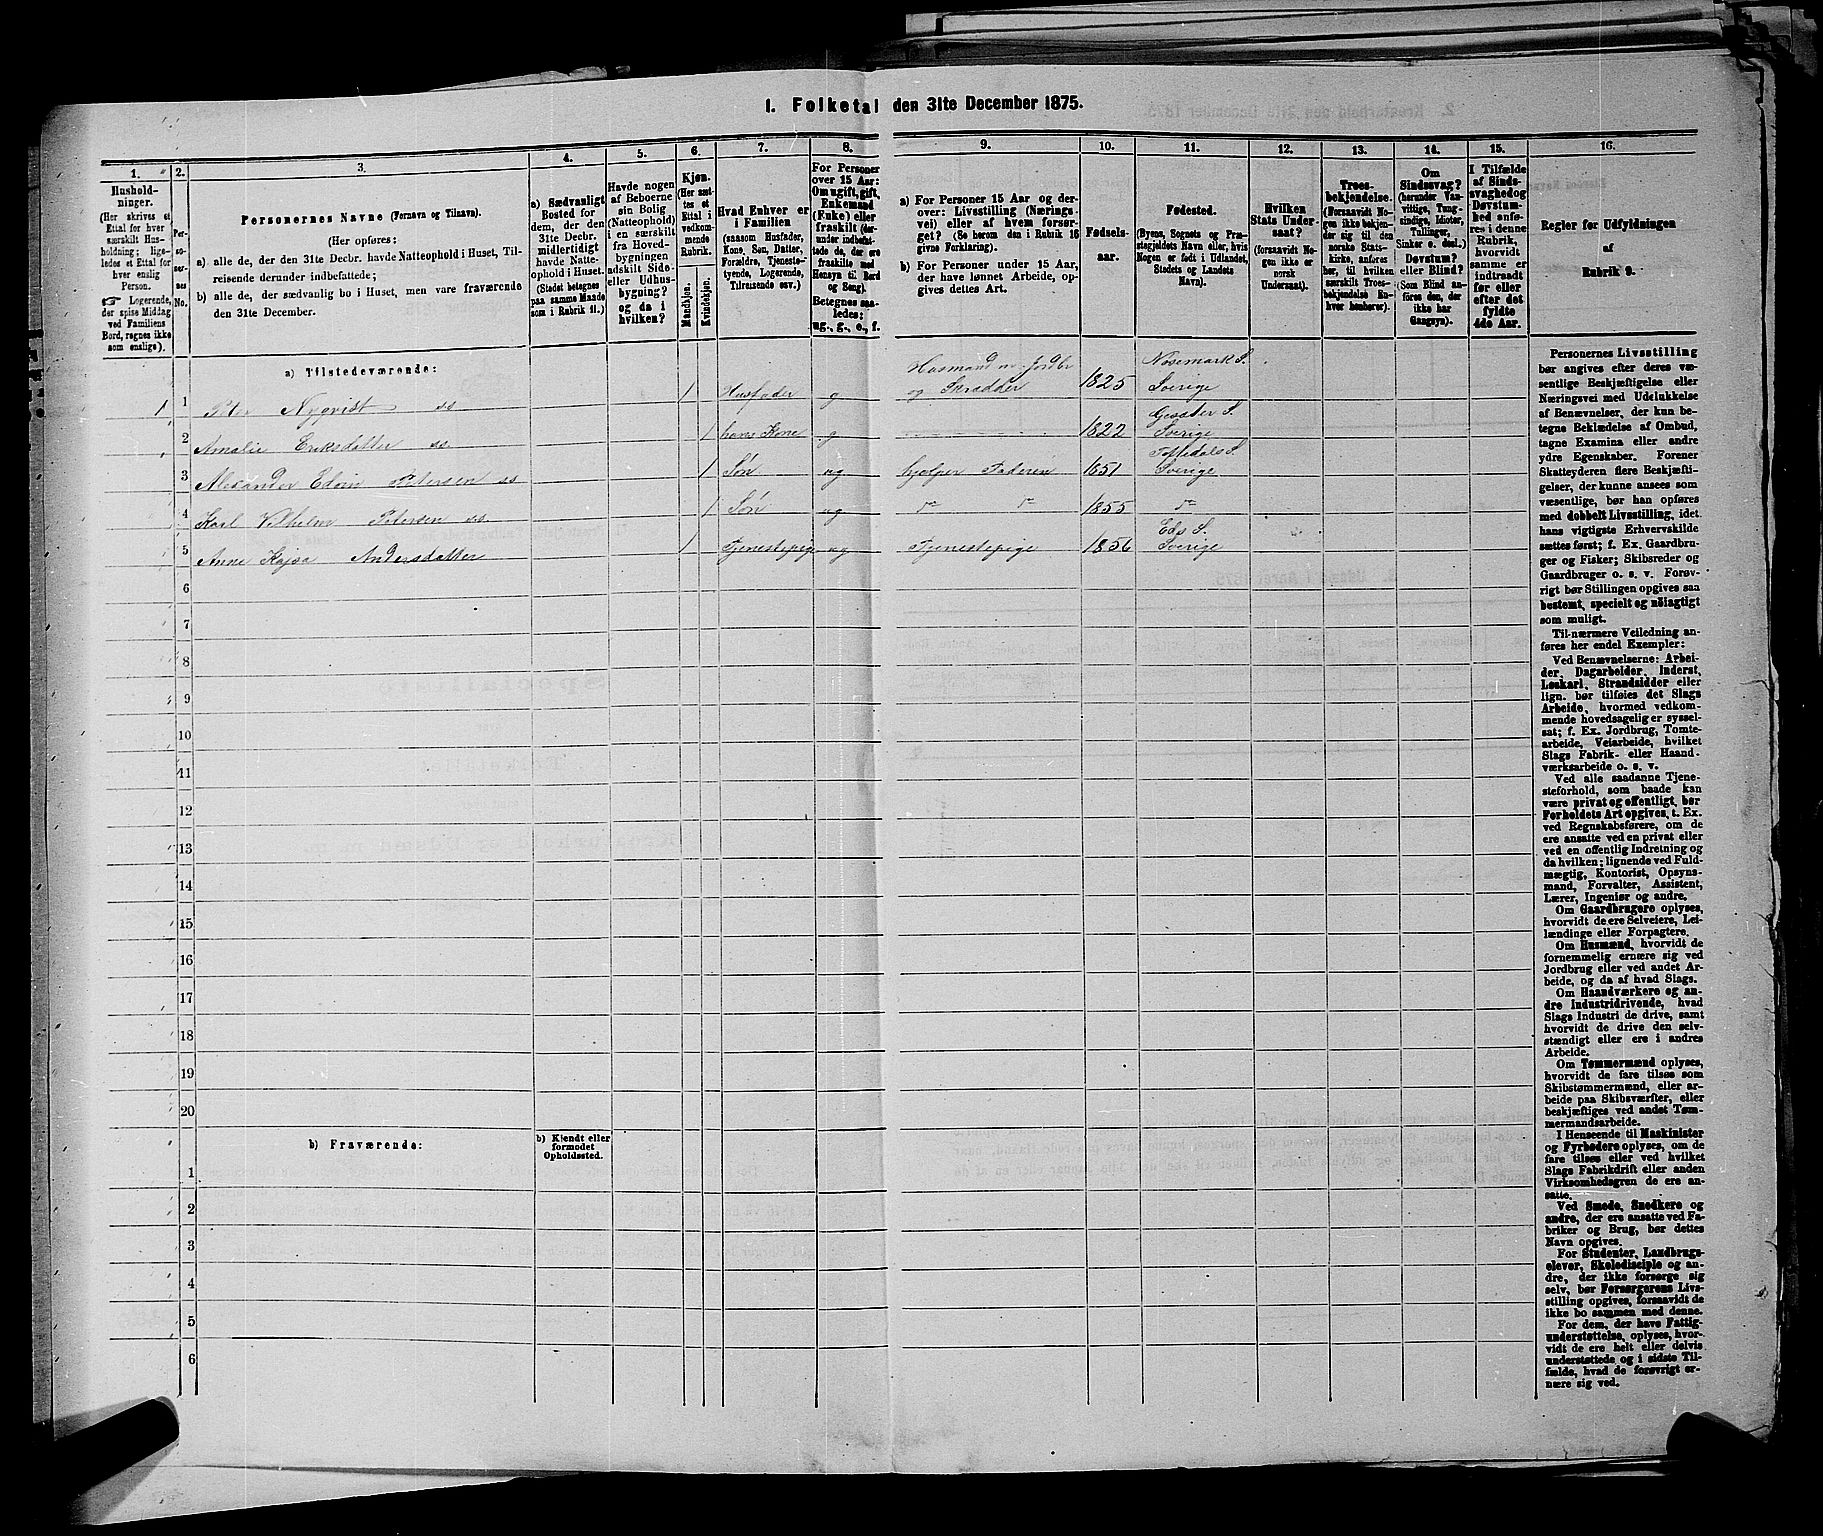 1. Folketal den 31te December 1875.
1. 2. 3. 4. 5. 6. 7. 8. 9. 10. 11. 12. 13. 14. 15. 16.
Hushold-
ninger.
(Her skrives et
Ettal for hver
særskilt Hus-
holdning; lige-
ledes et Ettal for
hver enslig
Person.
☞ Logerende,
der spise Middag
ved Familiens
Bord, regnes ikke
som enslige).
Per-
so-
ner-
nes
No.
Personernes Navne (Fornavn og Tilnavn).
(Her opføres:
a) alle de, der den 31te Decbr. havde Natteophold i Huset, Til-
reisende derunder indbefattede;
b) alle de, der sædvanlig bo i Huset, men vare fraværende
den 31te December.
a) Sædvanligt
Bosted for
dem, der den
31te Decbr.
midlertidigt
havde Natte-
ophold i Huset.
(Stedet betegnes
paa samme Maade
som i Rubrik 11.)
Havde nogen
af Beboerne
sin Bolig
(Natteophold)
i en særskilt
fra Hoved-
bygningen
adskilt Side-
eller Udhus-
bygning?
og da i
hvilken?
Kjøn.
(Her sæt-
tes et
Ettal i
vedkom-
mende
Rubrik.
Mandkjøn.
Kvindekjøn.
Hvad Enhver er
i Familien
(saasom Husfader,
Kone, Søn, Datter,
Forældre, Tjeneste-
tyende, Logerende,
Tilreisende osv.)
For Personer
over 15 Aar:
Om ugift, gift,
Enkemand
(Enke) eller
fraskilt (der-
under indbefat-
tede de, der ere
fraskilte med
Hensyn til Bord
og Seng).
Betegnes saa-
ledes:
ug., g., e., f.
a) For Personer 15 Aar og der-
over: Livsstilling (Nærings-
vei) eller af hvem forsør-
get? (Se herom den i Rubrik 16
givne Forklaring).
b) For Personer under 15 Aar,
der have lønnet Arbeide, op-
gives dettes Art.
Fødsels-
aar.
Fødested.
(Byens, Sognets og Præ-
stegjeldets Navn eller, hvis
Nogen er født i Udlandet,
Stedets og Landets
Navn).
Hvilken
Stats Under-
saat?
(forsaavidt No-
gen ikke er
norsk
Undersaat).
Troes-
bekjendelse.
(Forsaavidt No-
gen ikke bekjen-
der sig til den
norske Stats-
kirke, anføres
her, til hvilken
særskilt Troes-
bekjendelse En-
hver henhører).
Om
Sindssvag?
(herunder Van-
vittige, Tung-
sindige, Idioter,
Tullinger,
Sinker o. desl.)
Døvstum?
eller Blind?
(Som Blind an-
føres den, der
ikke har
Gangsyn).
I Tilfælde
af Sinds-
svaghed og
Døvstum-
hed anfø-
res i denne
Rubrik,
hvorvidt
samme er
indtraadt
før eller
efter det
fyldte
4de Aar.
Regler for Udfyldningen
af
Rubrik 9.
a) Tilstedeværende:
1 1 Peter Nyqvist ss 1 Husfader g Husmand m. Jordbr og Skrædder 1825 Nøsemark S. Sverige
2 Amalie Eriksdatter ss. 1 hans Kone g 1822 Gesæter S. Sverige
3 Alexander Edvin Petersen ss 1 Søn ug hjælper Faderen 1851 Töftedals S. Sverige
4 Karl Vilhelm Petersen ss. 1 Søn ug do do 1855 do
5 Anne Kajsa Andersdatter 1 Tjenestepige ug Tjenestepige 1856 Eds S. Sverige
6
7
8
9
10
11
12
13
14
15
16
17
18
19
20
b) Fraværende:
b) Kjendt eller
formodet
Opholdssted.
1
2
3
4
5
6
Personernes Livsstilling
bør angives efter deres væ-
sentlige Beskjæftigelse eller
Næringsvei med Udelukkelse
af Benævnelser, der kun be-
tegne Beklædelse af Ombud,
tagne Examina eller andre
ydre Egenskaber. Forener
Skatteyderen flere Beskjæfti-
gelser, der kunne ansees som
væsentlige, bør han opføres
med dobbelt Livsstilling, idet
hans vigtigste Erhvervskilde
sættes først; f. Ex. Gaardbru-
ger og Fisker; Skibsreder og
Gaardbruger o. s. v. Forøv-
rigt bør Stillingen opgives saa
bestemt, specielt og nöiagtigt
som muligt.
Til nærmere Veiledning an-
føres her endel Exempler:
Ved Benævnelserne: Arbei-
der, Dagarbeider, Inderst,
Løskarl, Strandsidder eller
lign. bør tilføies det Slags
Arbeide, hvormed vedkom-
mende hovedsagelig er syssel-
sat; f. Ex. Jordbrug, Tomte-
arbeide, Veiarbeide, hvilket
Slags Fabrik- eller Haand-
værksarbeide o. s. v.
Ved alle saadanne Tjene-
steforhold, som baade kan
være privat og offentligt, bør
Forholdets Art opgives, t. Ex.
ved Regnskabsførere, om de
ere ansatte ved en privat eller
ved en offentlig Indretning og
da hvilken; lignende ved Fuld-
mægtig, Kontorist, Opsyns-
mand, Forvalter, Assistent,
Lærer, Ingeniør og andre.
Om Gaardbrugere oplyses,
hvorvidt de ere Selveiere, Lei-
lændinge eller Forpagtere.
Om Husmænd, hvorvidt de
fornemmelig ernære sig ved
Jordbrug eller ved andet Ar-
beide, og da af hvad Slags.
Om Haandværkere og an-
dre Industridrivende, hvad
Slags Industri de drive, samt
hvorvidt de drive den selv-
stændigt eller ere i andres
Arbeide.
Om Tømmermænd oplyses,
hvorvidt de fare tilsøs som
Skibstømmermænd, eller ar-
beide paa Skibsværfter, eller
beskjæftiges ved andet Tøm-
mermandsarbeide.
I Henseende til Maskinister
og Fyrbødere oplyses, om de
fare tilsøs eller ved hvilket
Slags Fabrikdrift eller anden
Virksomhedsgren de ere an-
satte.
Ved Smede, Snedkere og
andre, der ere ansatte ved Fa-
briker og Brug, bør dettes
Navn opgives.
For Studenter, Landbrugs-
elever, Skoledisciple og an-
dre, der ikke forsørge sig
selv, bør Forsørgerens Livs-
stilling opgives, forsaavidt de
ikke bo sammen med denne.
For dem, der have Fattig-
understøttelse, oplyses, hvor-
vidt de ere helt eller delvis
understøttede og i sidste Til-
fælde, hvad de forøvrigt er-
nære sig ved.